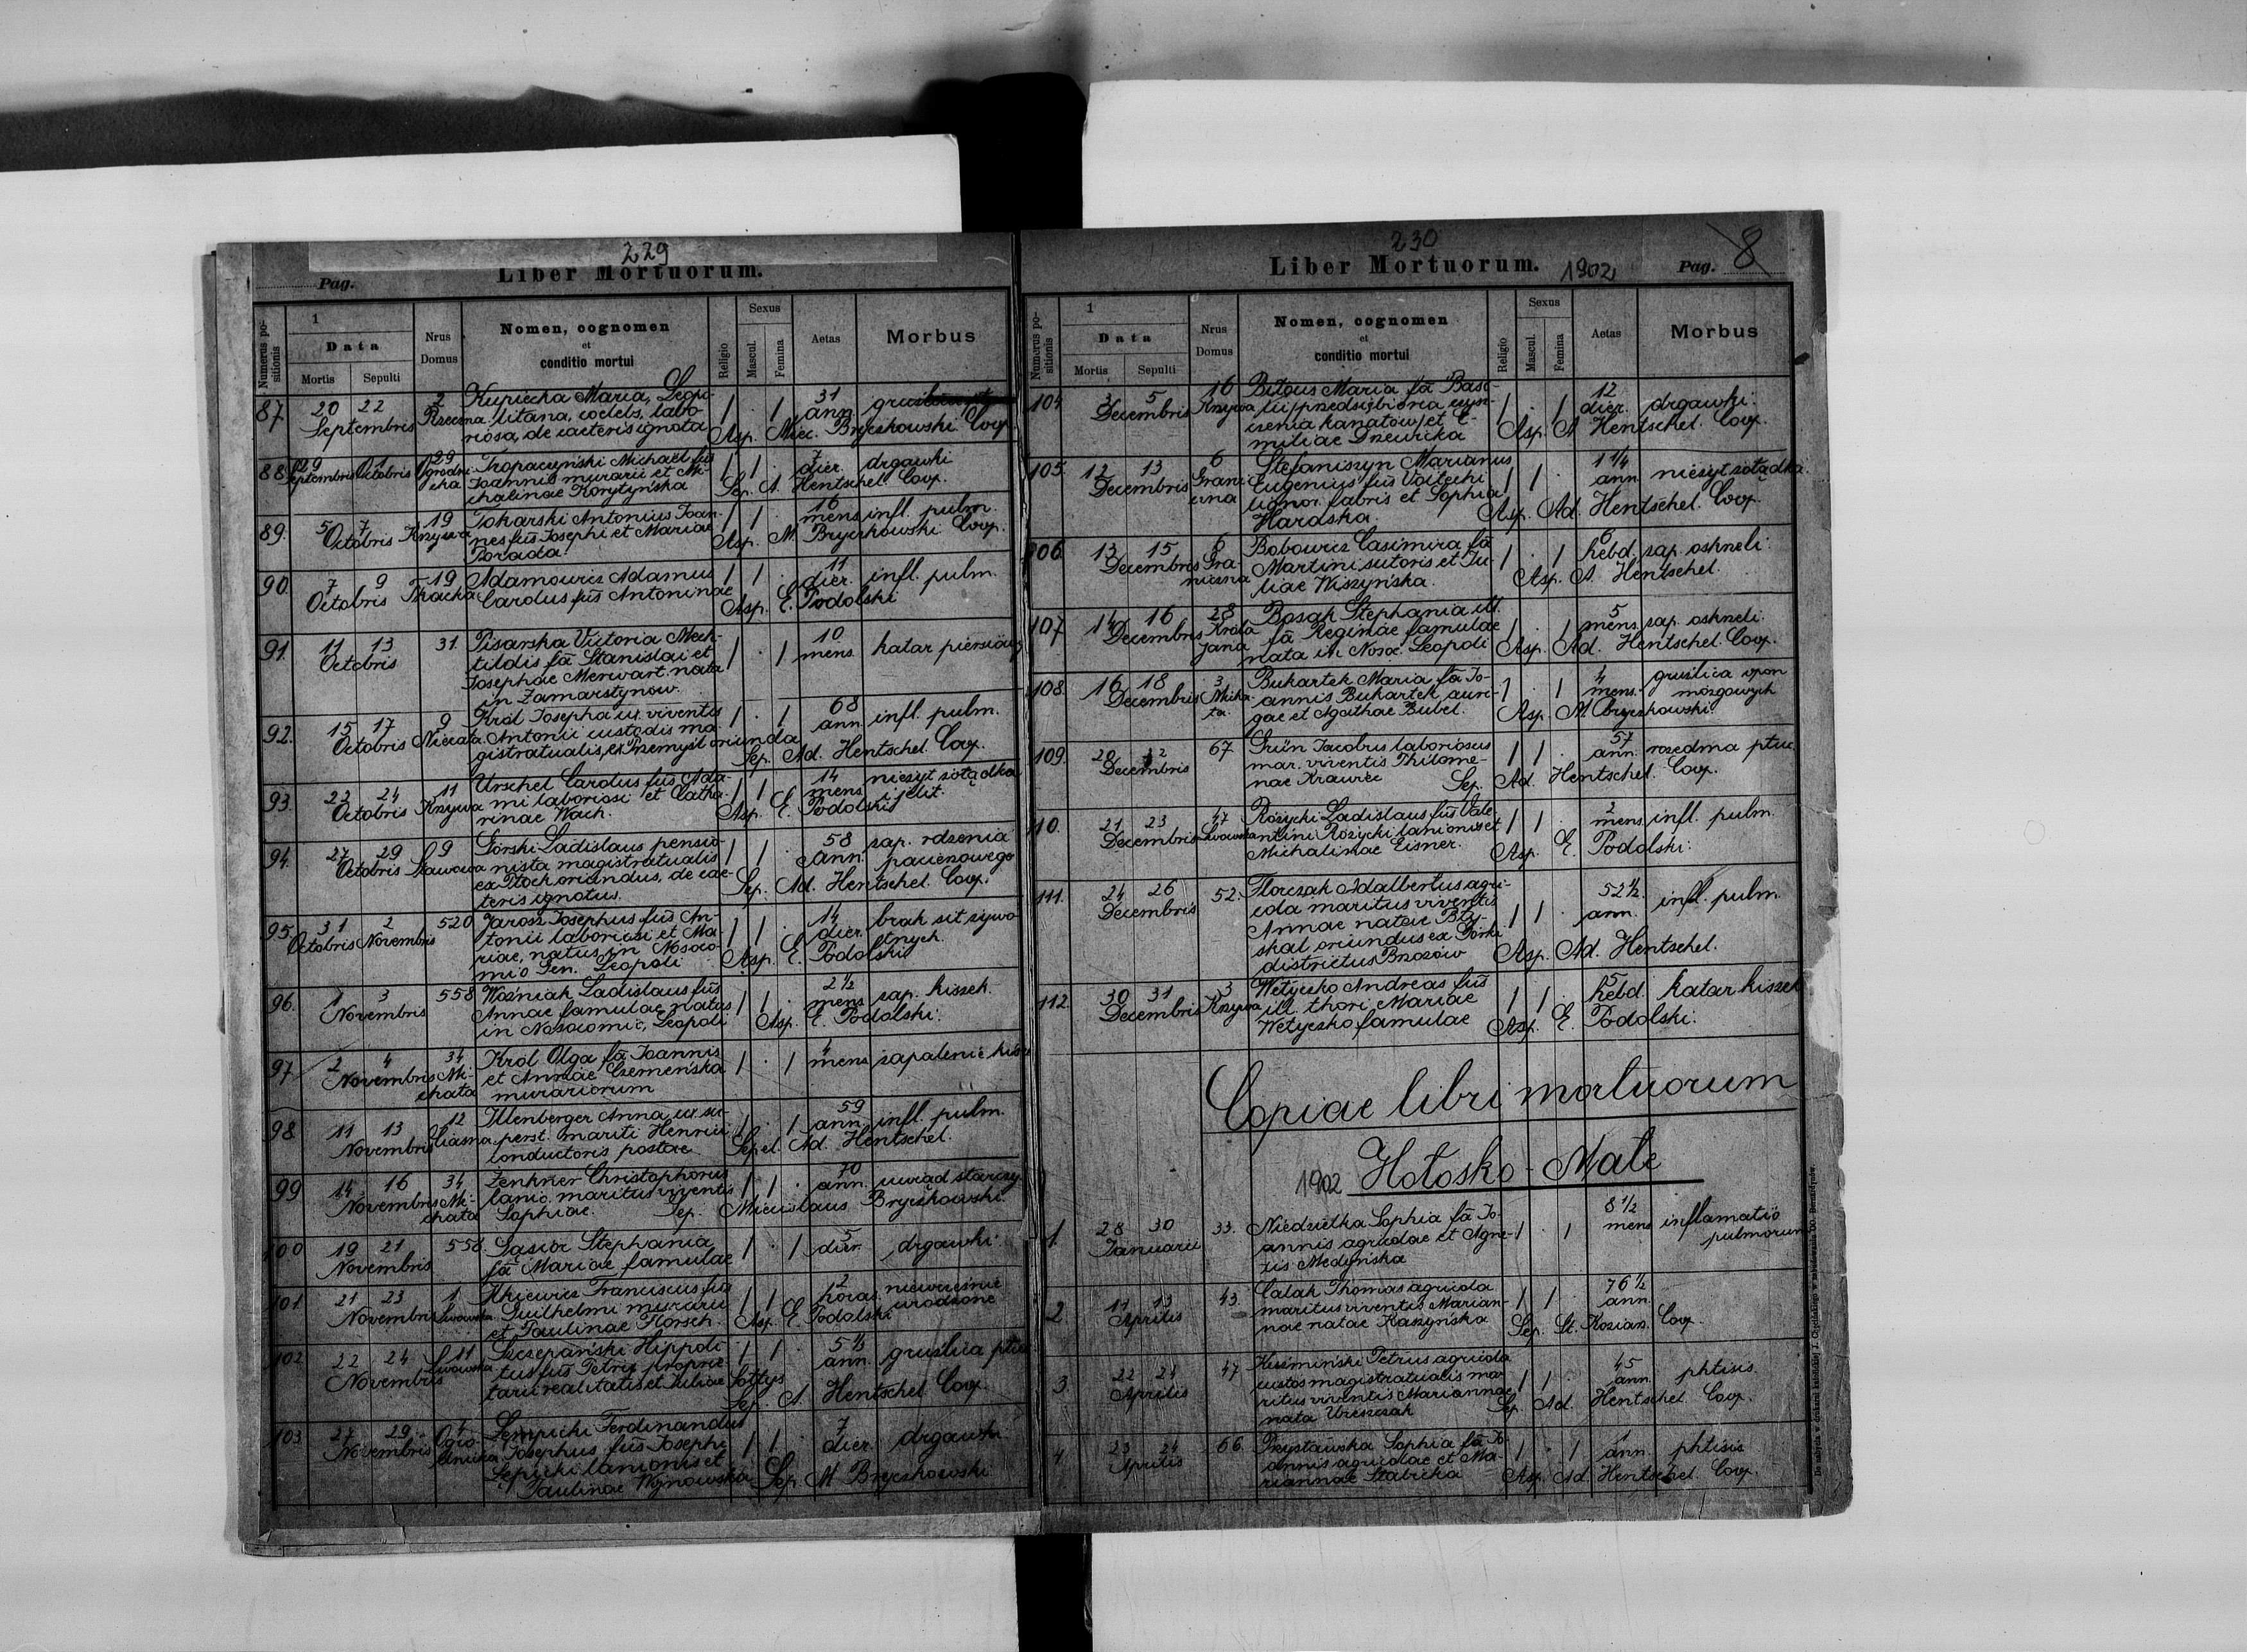 229
Liber Mortuorum.
Pag.
Numerus positionis
1
Data
Mortis Sepulti
Nrus Domus
Nomen, cognomen
et
conditio mortui
Religio
Sexus
Mascul. Femina
Aetas
Morbus
87. 20 22 Septembris 2 Rzeczna
Kupiecka Maria, Leopo-
litana, coelebs, labo-
riosa, de caeteris ignota
1 . 1 31 ann.
Asp. Miec. Bryczkowski Coop.
88. 29 Septembris 1 Octobris 29 Ogrodni-
cka
Tropaczyński Michael fus
Joannis murarii et Mi-
chalinae Korytyńska
1 1 . 7 dier. drgawki
Sep. A. Hentschel Coop.
89. 5 7 Octobris 19 Krzywa
Tokarski Antonius Joan-
nes fus Josephi et Mariae
Porada
1 1 . 16 mens infl. pulm.
Asp. M. Bryczkowski Coop.
90. 7 9 Octobris 19 Tkacka
Adamowicz Adamus
Carolus fus Antoninae
1 1 . 11 dier. infl. pulm.
Asp. E. Podolski
91. 11 13 Octobris 31.
Pisarska Victoria Mech-
tildis fa Stanislai et
Josephae Merwart. nata
in Zamarstynow.
1 . 1 10 mens. katar piersiowy
92. 15 17 Octobris 9
Król Josepha ux. viventis
Antonii custodis ma-
gistratualis, ex Przemyśl oriunda
1 . 1 68 ann. infl. pulm.
Sep. Ad. Hentschel Coop.
93. 22 24 Octobris 11 Krzywa
Urschel Carolus fus Ada-
mi laboriosi et Catha-
rinae Wach.
1 1 . 14 mens nieżyt żołądka
i jelit
Asp. E. Podolski
94. 27 29 Octobris 9
Górski Ladislaus pensio-
nista magistratualis
ex Płock oriundus, de cae-
teris ignotus.
1 1 . 58 ann. zap. rdzenia
pacierzowego
Sep. Ad. Hentschel Coop.
95. 31 Octobris 2 Novembris 520
Jarosz Josephus fus An-
tonii laboriosi et Ma-
riae, natus in Nosoco-
mio Gen. Leopoli
1 1 . 14 dier. brak sił żywo-
tnych.
Asp. E. Podolski
96. 1 3 Novembris 558
Woźniak Ladislaus fus
Annae famulae natus
in Nosocomio, Leopoli
1 1 . 2 1/2 mens zap. kiszek.
Asp. E. Podolski.
97. 2 4 Novembris 34 Mi-
chała
Król Olga fa Joannis
et Annae Czemeńska
murariorum
1 . 1 4 mens zapalenie
98. 11 13 Novembris 12
Illenberger Anna, ux. su-
perst. mariti Henrici
conductoris postae
1 . 1 59 ann. infl. pulm.
Sepel. Ad. Hentschel.
99 14 16 Novembris 34 Mi-
chała
Zenkner Christophorus
lanio. maritus viventis
Sophiae.
1 1 . 70 ann. uwiąd starczy
Sep. Miecislaus Bryczkowski
100 19 21 Novembris 558.
Gąsior Stephania
fa Mariae famulae
1 . 1 5 dier. drgawki.
101 21 23 Novembris 1. Lwowska
Franciscus fus
Guilhelmi murarii
et Paulinae Florsch.
1 1 . 2 horas niewcześnie
urodzone
Asp. E. Podolski
102 22 24 Novembris 11 Lwowska
Szczepański Hippoli-
tus fus Petri proprie-
tarii realitatis et Juliae Sołtys
1 1 . ann. gruźlica
Sep. A. Hentschel Coop.
103 27 29 Novembris
Lempicki Ferdinandus
Josephus fus Josephi
Lepicki lanionis et
Paulinae Wojnowska
1 1 . 7 dier. drgawki
Sep. M. Bryczkowski
230
Liber Mortuorum. 1902
Pag. 8
Numerus positionis
1
Data
Mortis Sepulti
Nrus Domus
Nomen, cognomen
et
conditio mortui
Religio
Sexus
Mascul. Femina
Aetas
Morbus
104 3 5 Decembris 16 Krzywa
Bilous Maria fa Basi-
lii przedsiębiorca czysz-
czenia kanałów et E-
miliae Drewicka
1 . 1 12 dier. drgawki.
Asp. A. Hentschel. Coop.
105. 12 13 Decembris 6 Grani-
czna
Stefaniszyn Marianus
Eugenius fus Voitechi
lignor. fabris et Sophia
Haraska.
1 1 . 1 1/4 ann nieżyt żołądka.
Asp. Ad. Hentschel. Coop.
106. 13 15 Decembris 6 Gra-
niczna
Bobowicz Casimira fa
Martini sutoris et Ju-
liae Wiszyńska.
1 . 1 6 hebd. zap. oskrzeli.
Asp. A. Hentschel.
107. 14 16 Decembris 28 Króla
Jana
Bosak Stephania ill.
fa Reginae famulae
nata in Nosoc. Leopoli
1 . 1 5 mens zap. oskrzeli.
Asp. Ad. Hentschel. Coop.
108. 16 18 Decembris 3 Micha-
ła.
Bukartek Maria fa Jo-
annis Bukartek auri-
gae et Agathae Bubel.
1 . 1 4 mens. gruźlica opon
mózgowych
Asp. M. Bryczkowski.
109. 20 22 Decembris 67
Grün Jacobus laboriosus
mar. viventis Philome-
nae Krawiec
1 1 . 57 ann. rozedma płuc.
Sep. Ad. Hentschel. Coop.
110. 21 23 Decembris 47 Lwowska
Różycki Ladislaus fus Vale-
ntini Różycki lanionis et
Michalinae Eisner.
1 1 . 2 mens. infl. pulm.
Asp. E. Podolski.
111. 24 26 Decembris 52.
Florczak Adalbertus agri-
cola maritus viventis
Annae natae Bły-
skal oriundus ex Górki
districtus Brzozów
1 1 . 52 1/2 ann. infl. pulm.
Asp. Ad. Hentschel.
112. 30 31 Decembris 3 Krzywa
Wetyczko Andreas fus
ill. thori Mariae
Wetyczko famulae
1 1 . 5 hebd. katar kiszek
Asp. E. Podolski.
Copiae libri mortuorum
1902 Hołosko-Małe
1. 28 30 Januarii 33.
Niedzielka Sophia fa Jo-
annis agricolae et Agne-
tis Medyńska
1 . 1 8 1/2 mens inflamatio
pulmorum
2 11 13 Aprilis 43.
Calak Thomas agricola
maritus viventis Marian-
nae natae Kaszyńska
1 1 . 76 1/2 ann.
Sep. St. Kozian. Coop.
3. 22 24 Aprilis 47
Kuźmiński Petrus agricola
custos magistratualis ma-
ritus viventis Mariannae
nata Urzeszczak
1 1 . 45 ann. phtisis.
Sep. Ad. Hentschel Coop.
4 23 24 Aprilis 66.
Przystawska Sophia fa Jo-
annis agricolae et Ma-
riannae Stabicka
1 . 1 1 ann. phtisis
Asp. Ad. Hentschel. Coop.